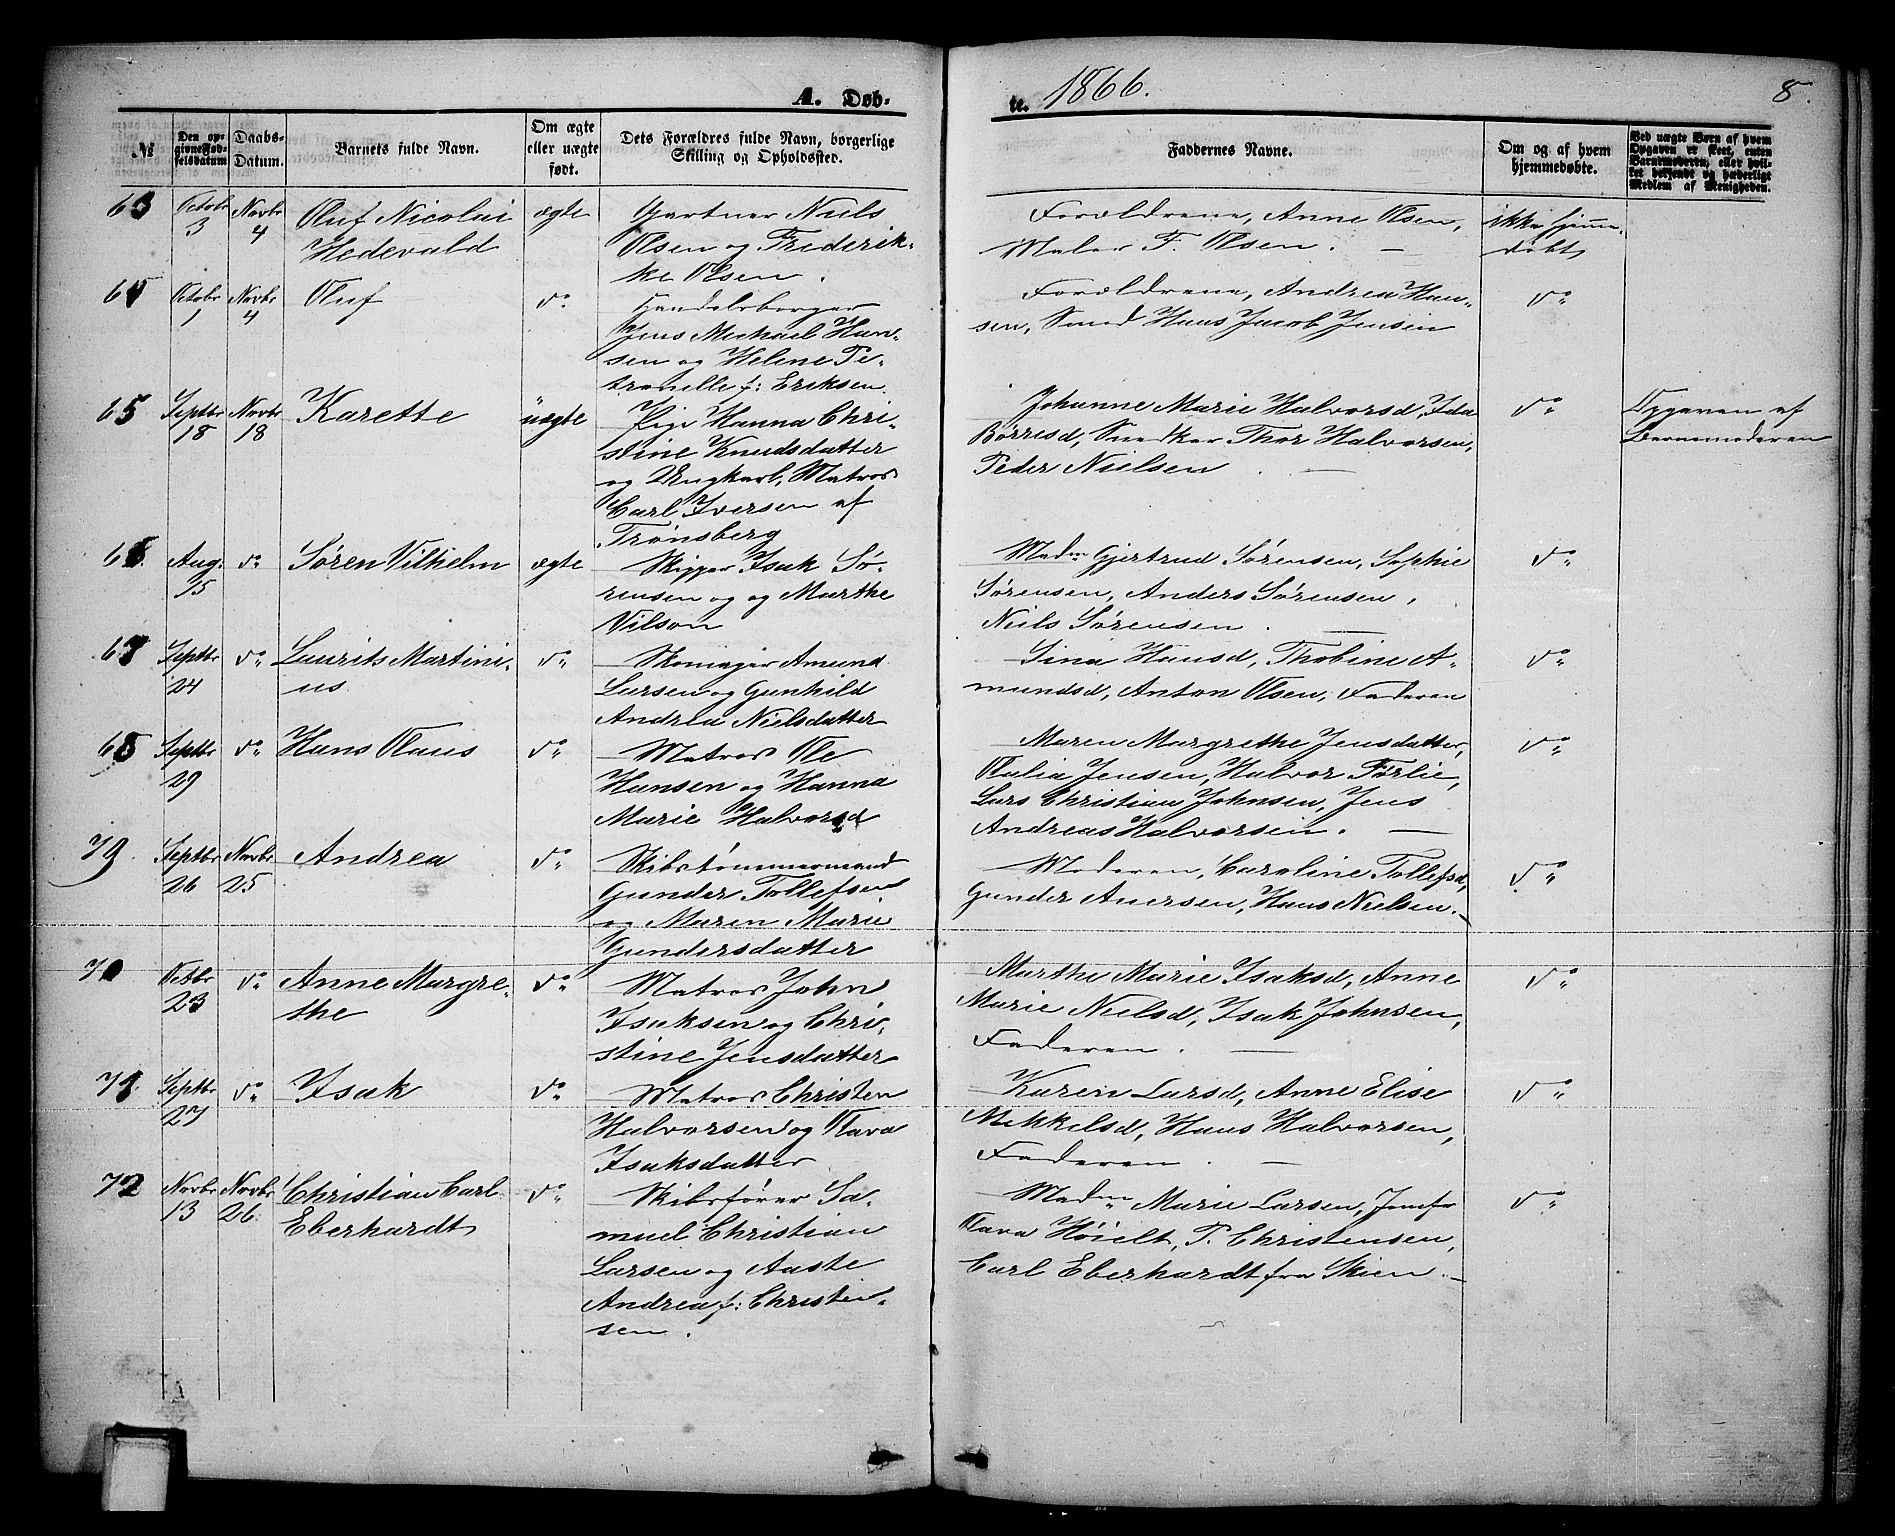 A. Døb-
te. 1866.
8.
№
Den op-
givne Fød-
selsdatum
Daabs-
Datum.
Barnets fulde Navn.
Om ægte
eller uægte
født.
Dets Forældres fulde Navn, borgerlige
Stilling og Opholdssted.
Faddernes Navne.
Om og af hvem
hjemmedøbte.
Ved uægte Børn af hvem
Opgaven er skeet, enten
Barnemoderen, eller hvil-
ket bekjendt og hæderligt
Medlem af Menigheden.
63 Octobr 3 Novbr 4 Oluf Nicolai
Hedevald
ægte
Gartner Niels
Olsen og Frederik-
ke Olsen.
Forældrene, Anne Olsen,
Maler F. Olsen. —
ikke hjemme-
døbt
64 Octobr 1 Novbr 4 Oluf do
Handelsborger
Jens Michael Han-
sen og Helene Pe-
tronelle f: Eriksen
Forældrene, Andrea Han-
sen, Smed Hans Jacob Jensen
do
65 Septbr 18 Novbr 18 Karette uægte
Pige Hanna Chri-
stine Knudsdatter
og Ungkarl, Matros
Carl Iversen af
Trønsberg
Johanne Marie Halvorsd, Ida
Børresd, Snedker Thor Halvorsen,
Peder Nielsen. —
do
Opgaven af
Barnemoderen
66 Aug. 15 do Søren Vilhelm ægte
Skipper Isak Sø-
rensen og og Marthe
Vilson
Madm Gjertrud Sørensen, Sophie
Sørensen, Anders Sørensen,
Niels Sørensen. —
do
67 Septbr 24 do Laurits Martini-
us
do
Skomager Amund
Larsen og Gunhild
Andrea Nielsdatter
Sina Hansd, Thobine A-
mundsd, Anton Olsen, Faderen
do
68 Septbr 29 do Hans Olaus do
Matros Ole
Hansen og Hanna
Marie Halvorsd
Maren Margrethe Jensdatter,
Olalia Jensen, Halvor Førlie,
Lars Christian Johnsen, Jens
Andreas Halvorsen. —
do
Septbr 26 Novbr 25 Andrea do
Skibstømmermand
Gunder Tollefsen
og Maren Marie
Gundersdatter
Moderen, Caroline Tollefsd,
Gunder Anersen, Hans Nielsen. —
do
70 Octbr 23 do Anne Margre-
the
do
Matros John
Isaksen og Chri-
stine Jensdatter
Marthe Marie Isaksd, Anne
Marie Nielsd, Isak Johnsen,
Faderen. —
do
71 Septbr 27 do Isak do
Matros Christen
Halvorsen og Olava
Isaksdatter
Karen Larsd, Anne Elise
Mekkelsd, Hans Halvorsen,
Faderen. —
do
72 Novbr 13 Novbr 26 Christian Carl
Eberhardt
do
Skibsfører Sa-
muel Christian
Larsen og Aaste
Andrea f: Christen-
sen.
Madm Marie Larsen, Jomfr
Olava Höielt, P. Christensen,
Carl Eberhardt fra Skien. —
do